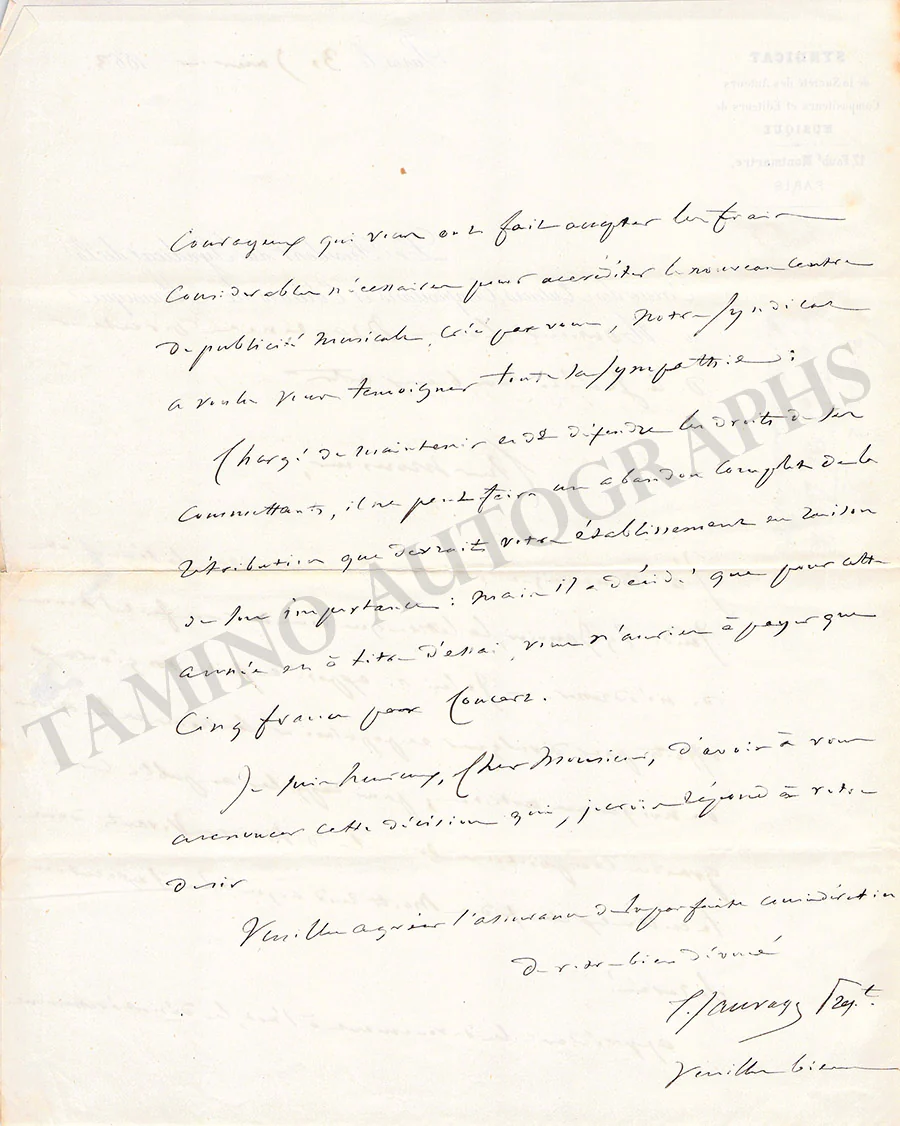 Courageux qui vous ont fait accepter les frais
Considérables nécessaires pour accréditer le nouveau Centre
De publicité musicale, créé par vous, Notre Syndicat
a voulu vous témoigner toute sa Sympathie :
Chargé de maintenir et de défendre les droits de ses
Commettants, il ne peut faire un abandon Complet de la
rétribution que devrait votre établissement en raison
de son importance : mais il a décidé que pour cette
année et à titre d'essai, vous n'auriez à payer que
Cinq francs par Concert.
Je suis heureux, Cher Monsieur, d'avoir à vous
annoncer cette décision qui, je crois répond à votre
desir
Veuillez agréer l'assurance de la parfaite considération
de votre bien dévoué
Sauvage
Veuillez bien
SYNDICAT
de la Société des Auteurs
Compositeurs et Editeurs de
MUSIQUE
17 Faubg Montmartre,
PARIS
TAMINO AUTOGRAPHS